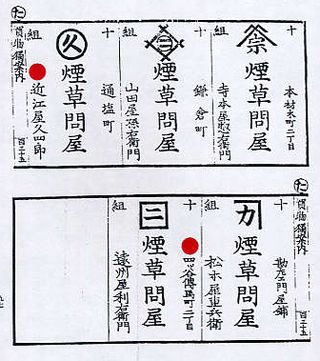 た
買物獨案内
十組
本材木町二丁目
宗
煙草問屋
寺本屋惣右衛門
十組
鎌倉町
三
煙草問屋
山田屋
右衛門
十組
通塩町
久
煙草問屋
近江屋久四郎
百二十五
た
買物獨案内
十組
勘左衛門屋鋪
カ
煙草問屋
松本屋重兵衛
十組
四ッ谷傳馬町二丁目
二
煙草問屋
遠州屋利右衛門
百二十五